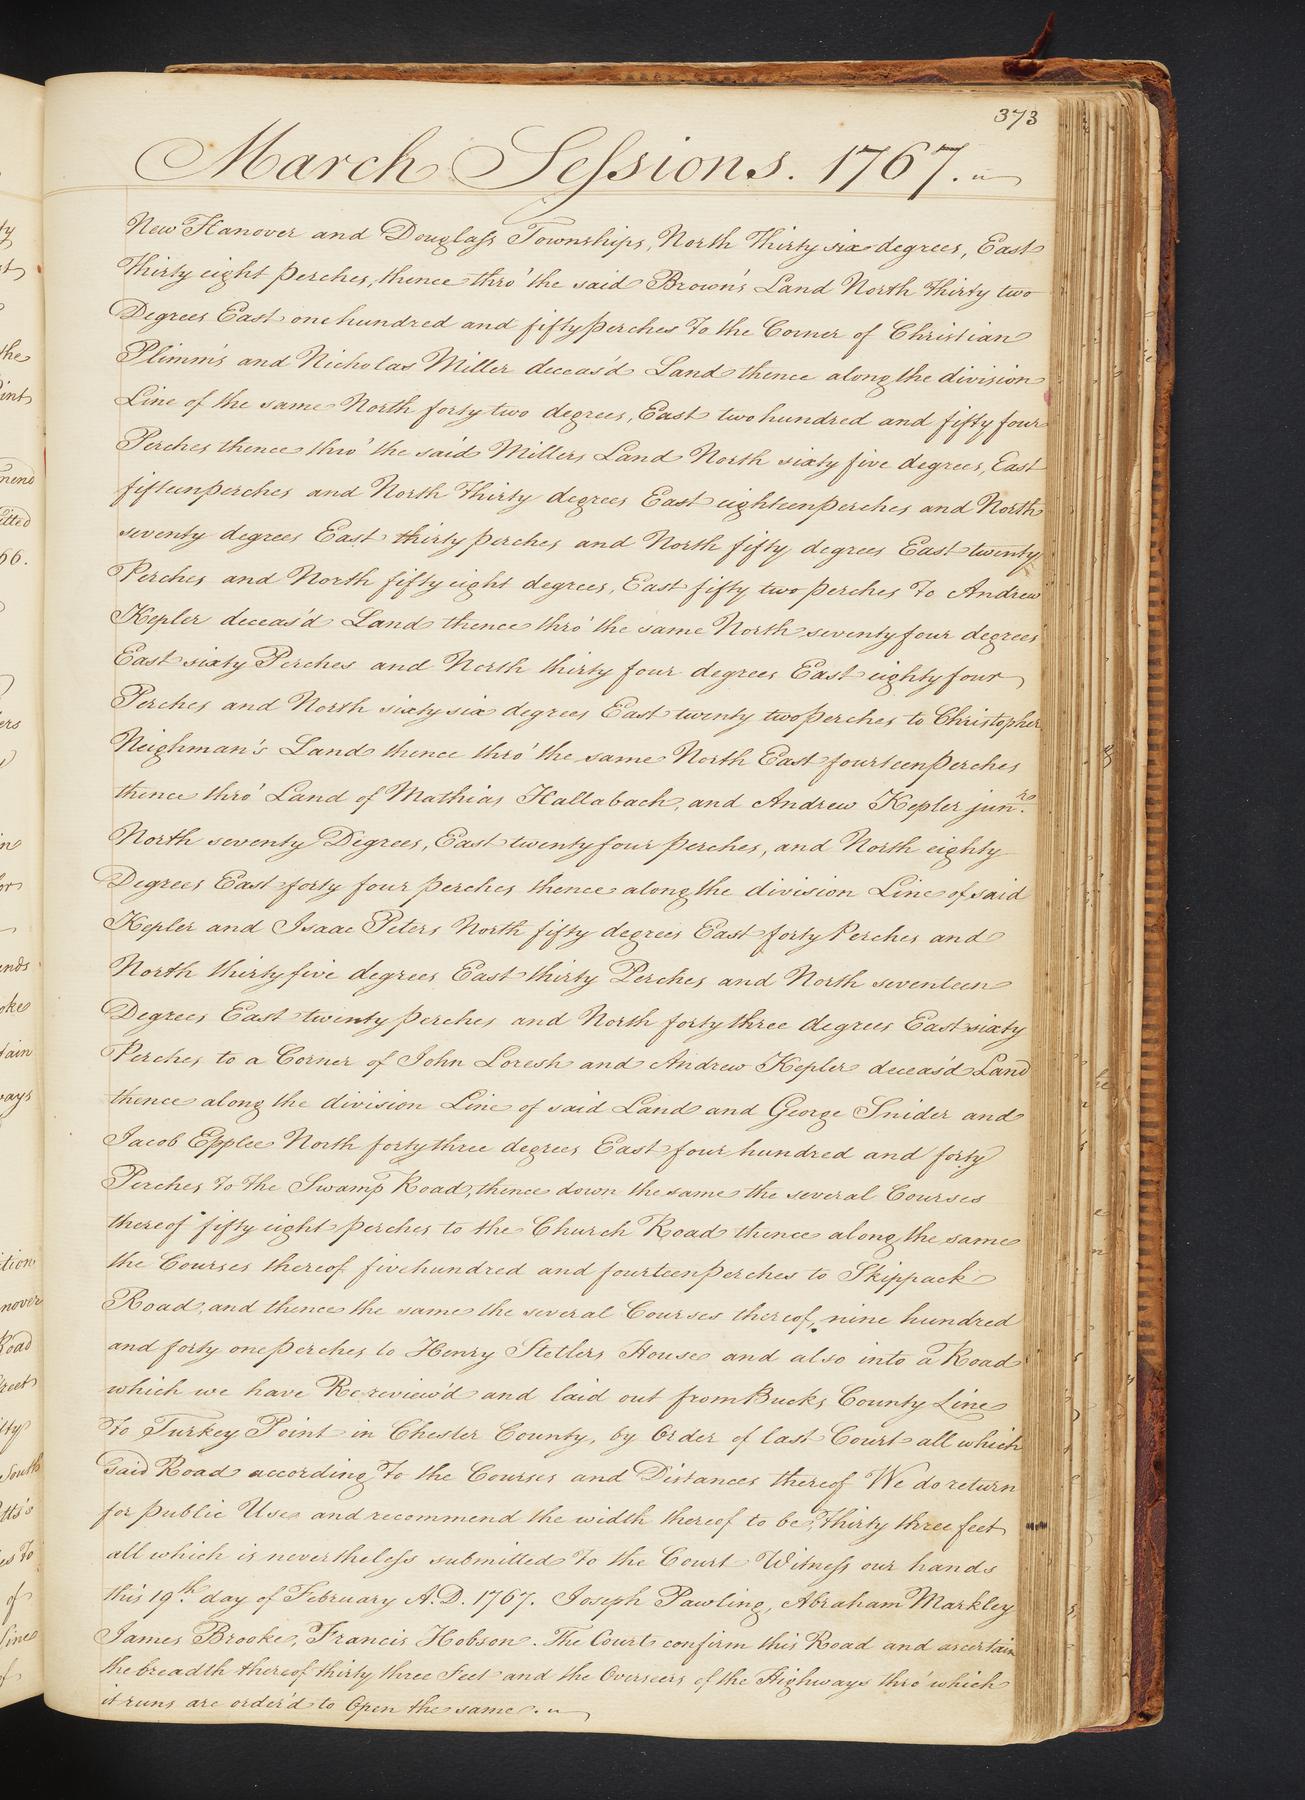 373
March Sessions. 1767.
New Hanover and Douglass Townships, North Thirty six degrees, East
Thirty eight perches, thence thro' the said Brown's Land North thirty two
Degrees East one hundred and fifty perches To the Corner of Christian
Plimm's and Nicholas Miller deceas'd Land thence along the division
Line of the same North forty two degrees, East two hundred and fifty four
Perches thence thro' the said Millers Land North sixty five degrees, East
fifteen perches and North Thirty degrees East eighteen perches and North
seventy degrees East thirty perches and North fifty degrees East twenty
Perches and North fifty eight degrees, East fifty two perches To Andrew
Kepler deceas'd Land thence thro' the same North seventy four degrees
East sixty Perches and North thirty four degrees East eighty four
Perches and North sixty six degrees East twenty two perches to Christopher
Neighman's Land thence thro' the same North East fourteen perches
thence thro' Land of Mathias Hallabach, and Andrew Kepler junr.
North seventy Degrees, East twenty four perches, and North eighty
Degrees East forty four perches thence along the division Line of said
Kepler and Isaac Peters North fifty degrees East forty Perches and
North thirty five degrees East thirty Perches and North seventeen
Degrees East twenty perches and North forty three degrees East sixty
Perches to a Corner of John Loresh and Andrew Kepler deceas'd Land
thence along the division Line of said Land and George Snider and
Jacob Epplee North forty three degrees East four hundred and forty
Perches To the Swamp Road, thence down the same the several Courses
thereof fifty eight perches to the Church Road thence along the same
the Courses thereof five hundred and fourteen perches to Skippack
Road, and thence the same the several Courses thereof, nine hundred
and forty one perches to Henry Stetlers House and also into a Road
which we have Re-review'd and laid out from Bucks County Line
To Turkey Point in Chester County, by Order of last Court all which
said Road according To the Courses and Distances thereof We do return
for public Use and recommend the width thereof to be, thirty three feet
all which is nevertheless submitted To the Court Witness our hands
this 19th. day of February A.D. 1767. Joseph Pawling, Abraham Markley
James Brooke, Francis Hobson. The Court confirm this Road and ascertain
the breadth thereof thirty three Feet and the Overseers of the Highways thro' which
it runs are order'd to Open the same.